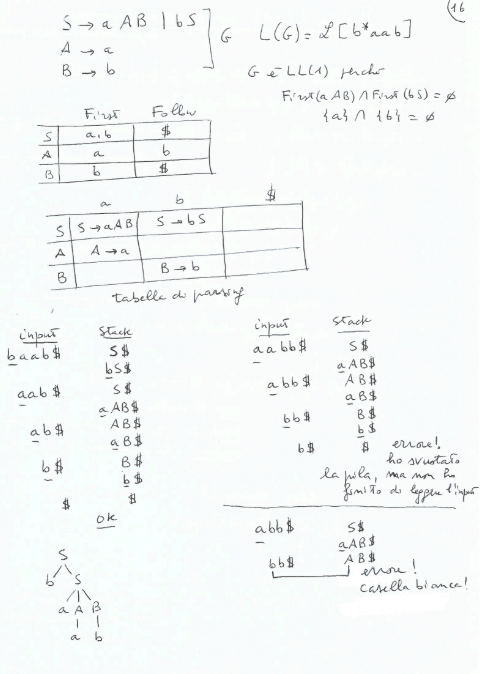 16
S → a AB | bS
A → a
B → b
G L(G) = L [b*aab]
G è LL(1) perché
First(aAB) ∩ First(bS) = ∅
{a} ∩ {b} = ∅
First Follow
S a, b $
A a b
B b $
a b $
S S → aAB S → bS
A A → a
B B → b
tabella di parsing
input stack
baab$ S$
bS$
aab$ S$
aAB$
ab$ AB$
aB$
b$ B$
b$
$ $
ok
S
b S
a A B
a b
input stack
aabb$ S$
aAB$
abb$ AB$
aB$
bb$ B$
b$
b$ $ errore!
ho svuotato
la pila, ma non ho
finito di leggere l'input
abb$ S$
aAB$
bb$ AB$
errore!
casella bianca!